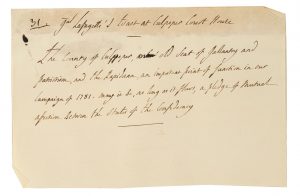 31. Gnl Lafayette's Toast at Culpeper Court House
The County of Culpeper, old Seat of Gallantry and
Patriotism, and the Rapidan an important point of Junction in our
Campaign of 1781 - may it be, as long as it flows, a pledge of Mutual
affection between the States of the Confederacy